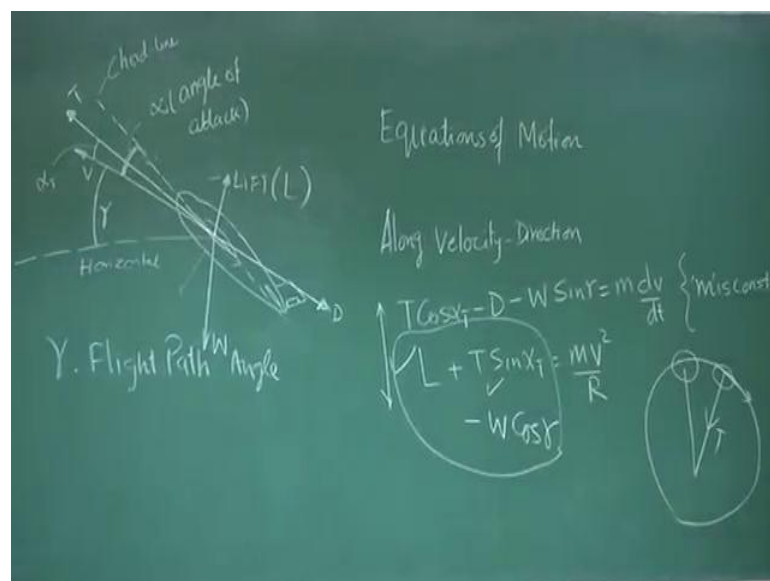 Chord line
T
α (angle of
attack)
αT
V
γ
LIFT (L)
Horizontal
D
W
γ. Flight Path Angle
Equations of Motion
Along Velocity-Direction
T Cos αT - D - W Sin γ = m dv/dt { 'm' is const
L + T Sin αT = mV²/R
- W Cos γ
T